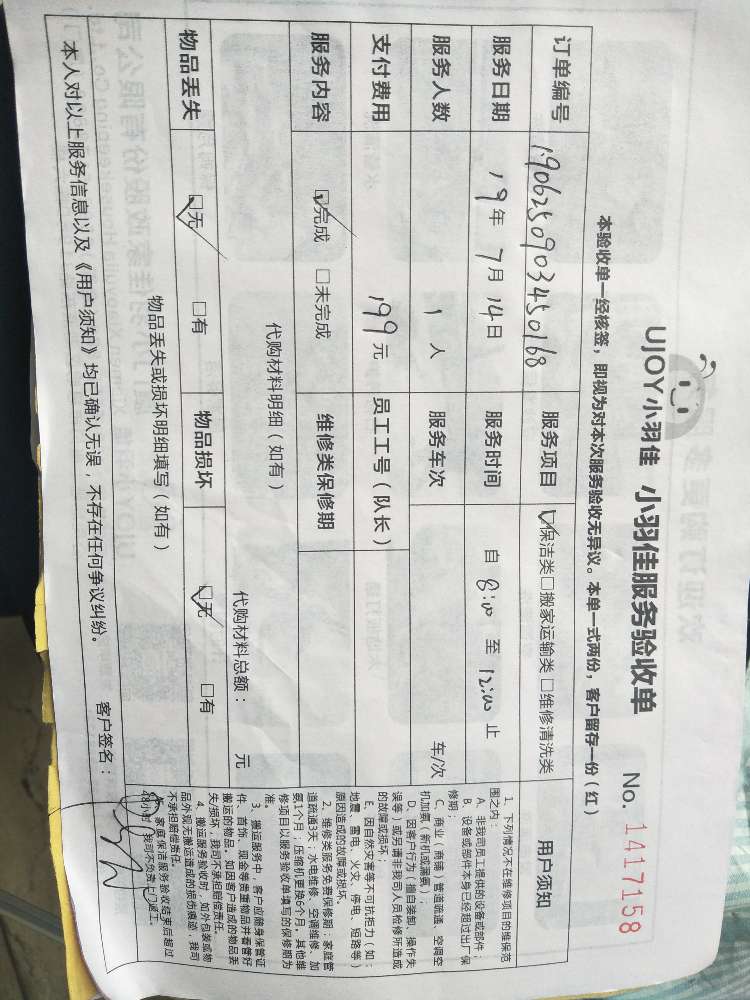 UJOY小羽佳 小羽佳服务验收单
No. 1417158
本验收单一经核签，即视为对本次服务验收无异议。本单一式两份，客户留存一份（红）
订单编号 1906250903450168 服务项目 ☑保洁类□搬家运输类□维修清洗类
服务日期 19年 7月 14日 服务时间 自 8:00 至 12:00 止
服务人数 1 人 服务车次 车/次
支付费用 199元 员工工号（队长）
服务内容 ☑完成 □未完成 维修类保修期
代购材料明细（如有）
代购材料总额： 元
物品丢失 ☑无 □有 物品损坏 ☑无 □有
物品丢失或损坏明细填写（如有）
本人对以上服务信息以及《用户须知》均已确认无误，不存在任何争议纠纷。 客户签名：
用户须知
1、下列情况不在维修项目的维保范
围之内：
A、非我司员工提供的设备或部件；
B、设备或部件本身已经超过出厂保
修期；
C、商业（商铺）管道疏通、空调空
机加氨（新机或漏氨）；
D、因客户行为（擅自装卸、操作失
误等）或另请非我司人员检修所造成
的故障或损坏；
E、因自然灾害等不可抗拒力（如：
地震、雷电、火灾、停电、短路等）
原因造成的故障或损坏。
2、维修类服务免费保修期：家庭管
道疏通3天；水电维修、空调维修、加
氨1个月；压缩机更换6个月，其他维
修项目以服务验收单填写的保修期为
准。
3、搬运服务中，客户应随身保管证
件、首饰、现金等贵重物品并看管好
搬运的物品。如因客户造成的物品丢
失/损坏，我司不承担赔偿责任。
4、搬运服务验收时，如外包装或物
品外观无搬运造成的损伤痕迹，我司
不承担赔偿责任。
5、家庭保洁服务验收结束后超过
48小时，我司不负责上门返工。